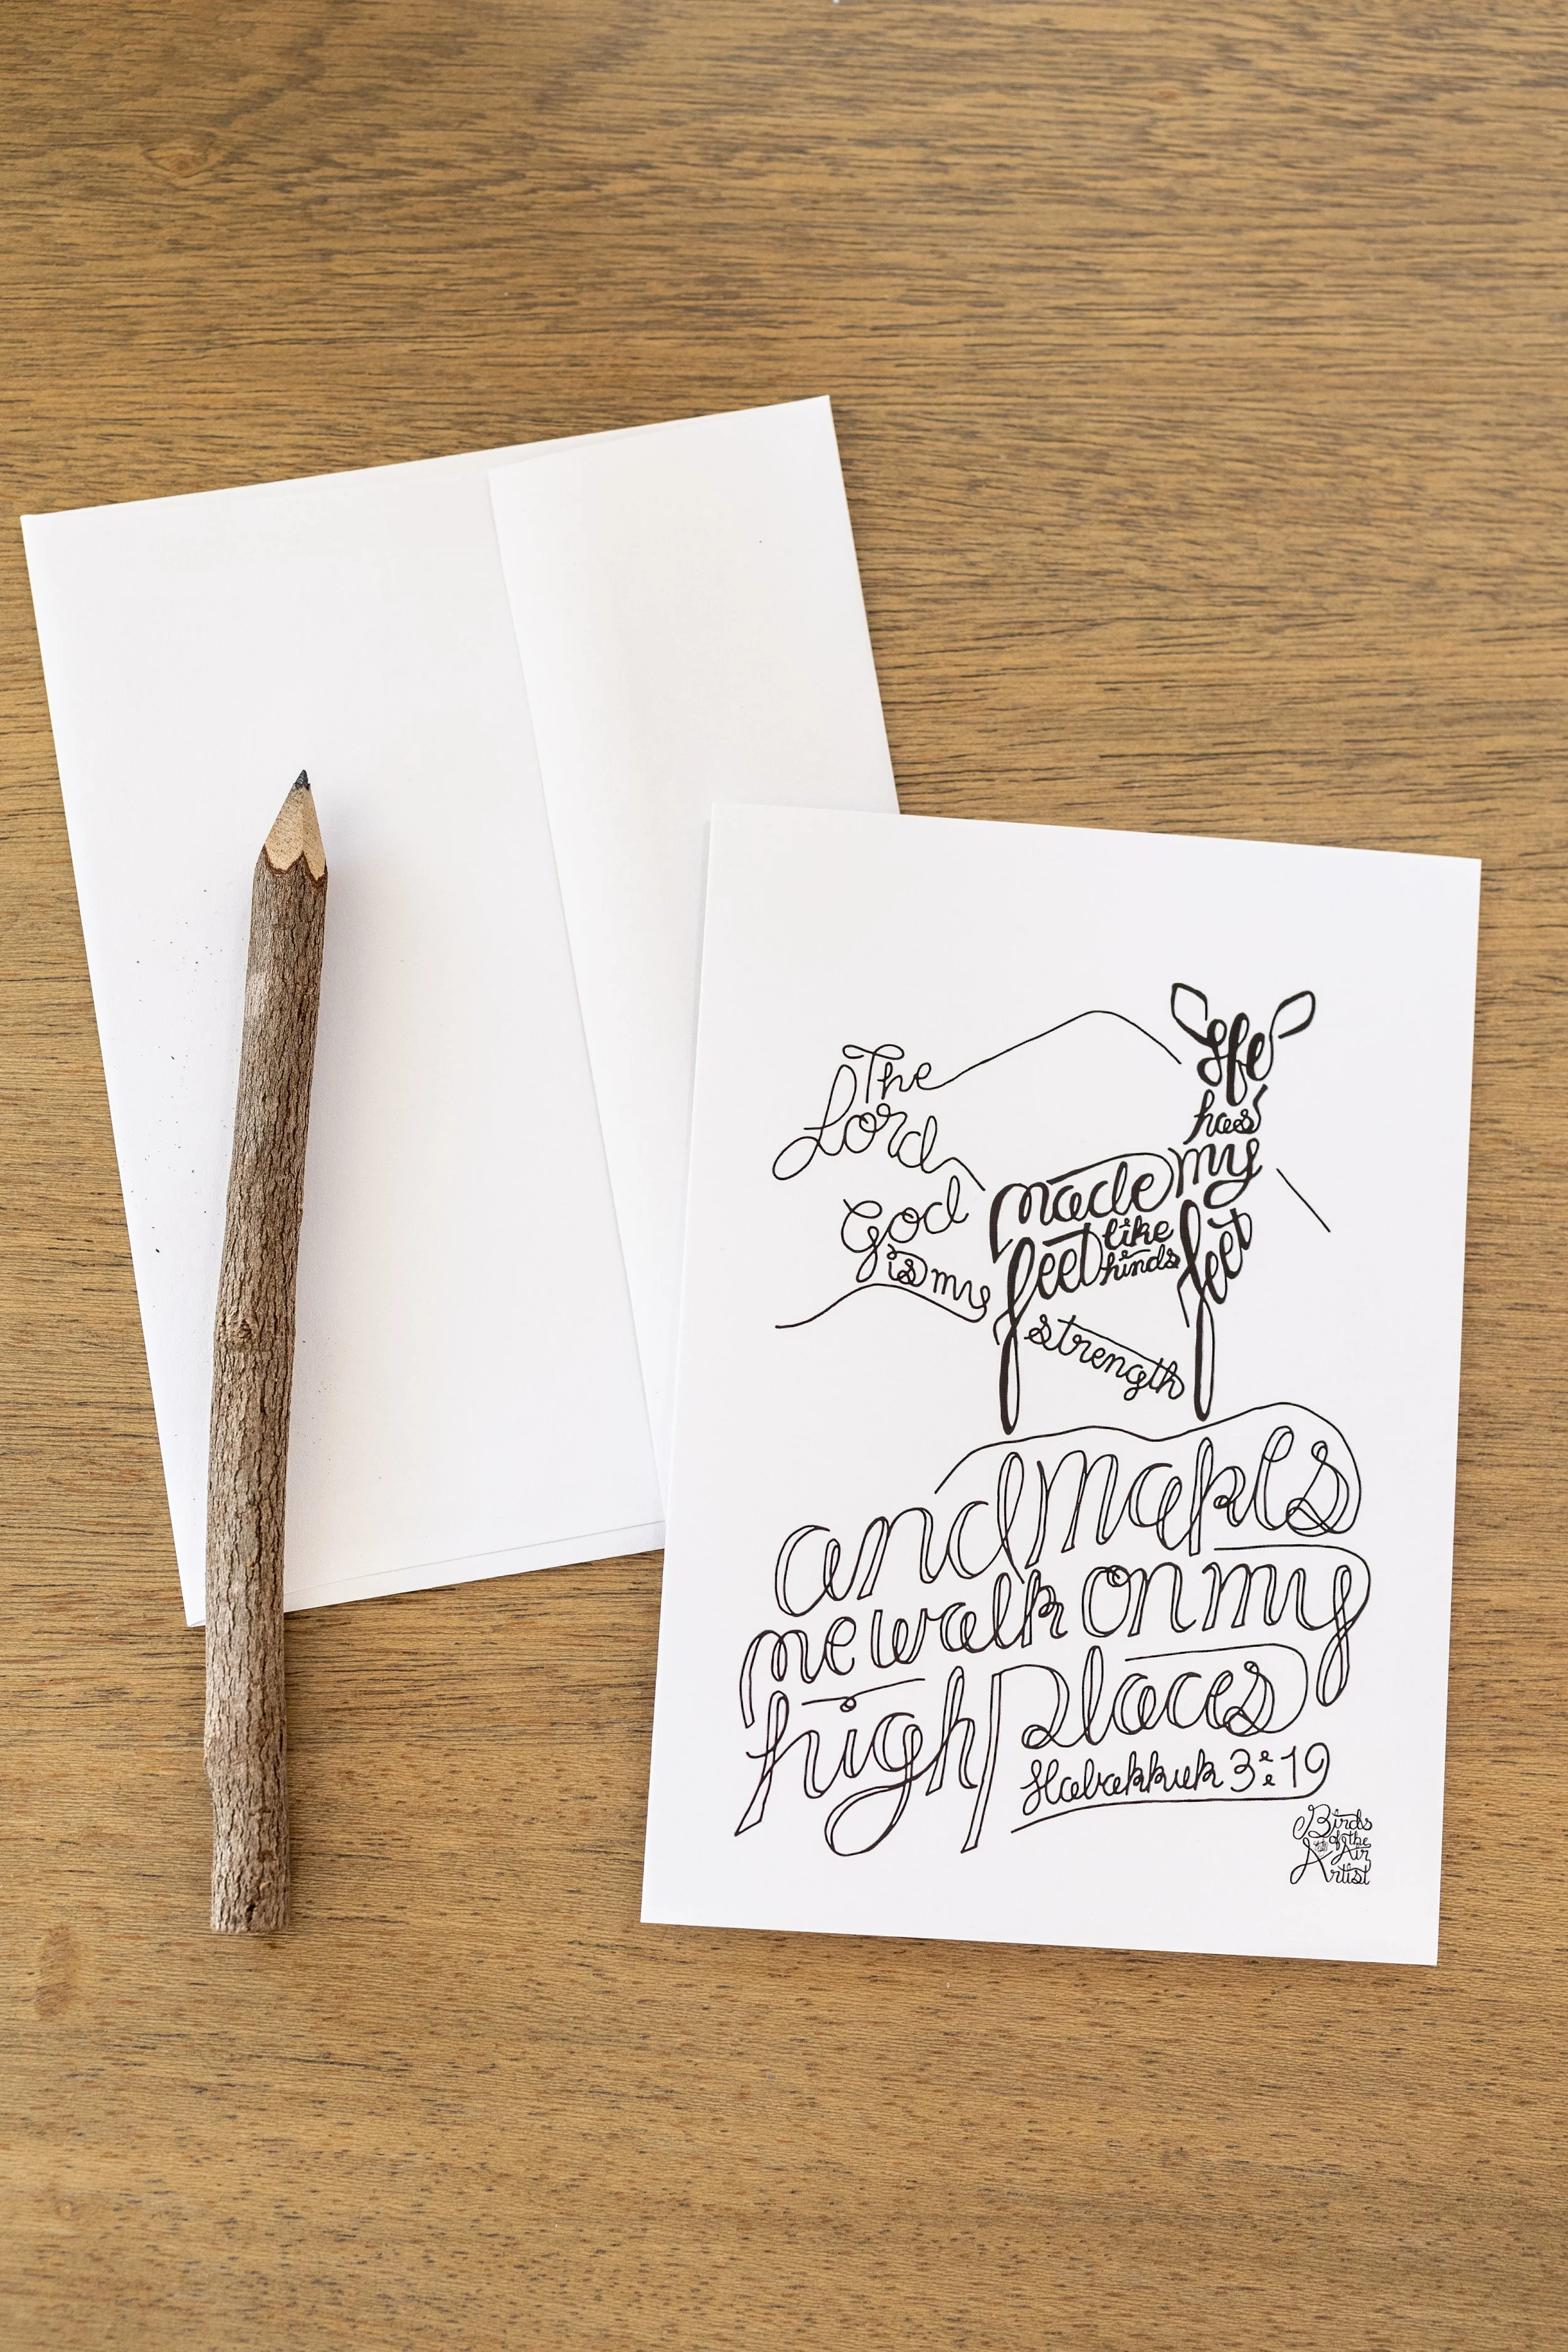 The
Lord
God
is my
strength
He
has
made my
feet like
hinds feet
and makes
me walk on my
high places
Habakkuk 3:19
Birds
of the
Air
Artist